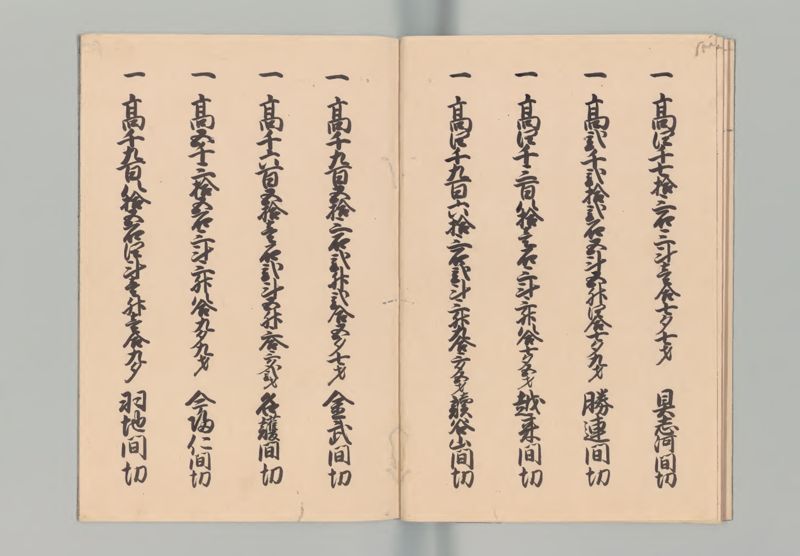 一 高四千七拾三石三斗壱合七夕七才 具志河間切
一 高弐千弐拾弐石五斗五升四合七夕九才 勝連間切
一 高四千三百八拾壱石三斗三升八合 越来間切
一 高四千九百六拾三石弐斗三升九合 読谷山間切
一 高千九百五拾三石弐升弐合五夕七才 金武間切
一 高千六百五拾壱石弐斗五升三合 名護間切
一 高五千三拾五石三斗三升八合九夕九才 今帰仁間切
一 高千九百八拾五石四斗壱升壱合九夕 羽地間切